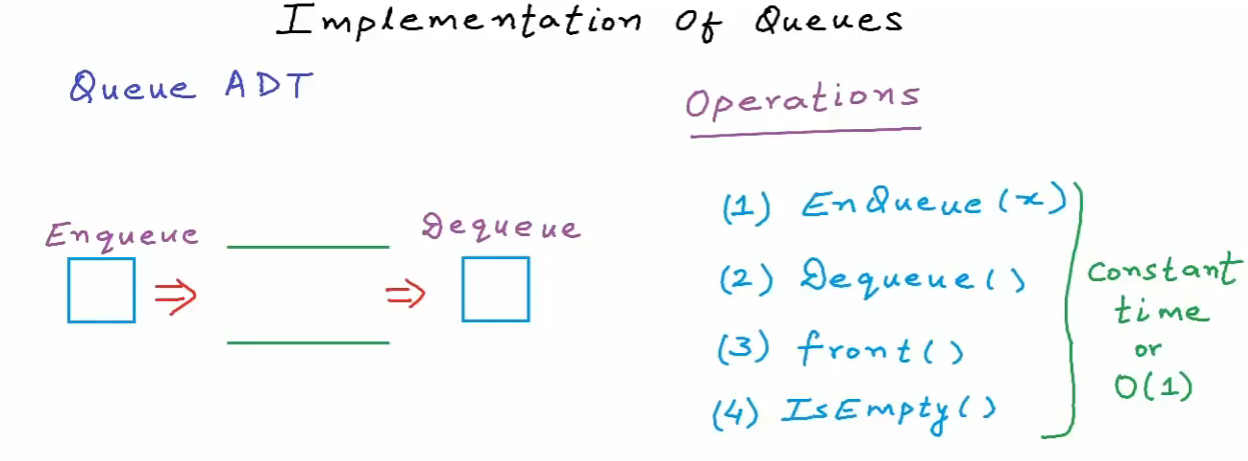 Implementation Of Queues
Queue ADT
Operations
Enqueue
Dequeue
(1) EnQueue(x)
(2) Dequeue()
(3) front()
(4) IsEmpty()
constant
time
or
O(1)